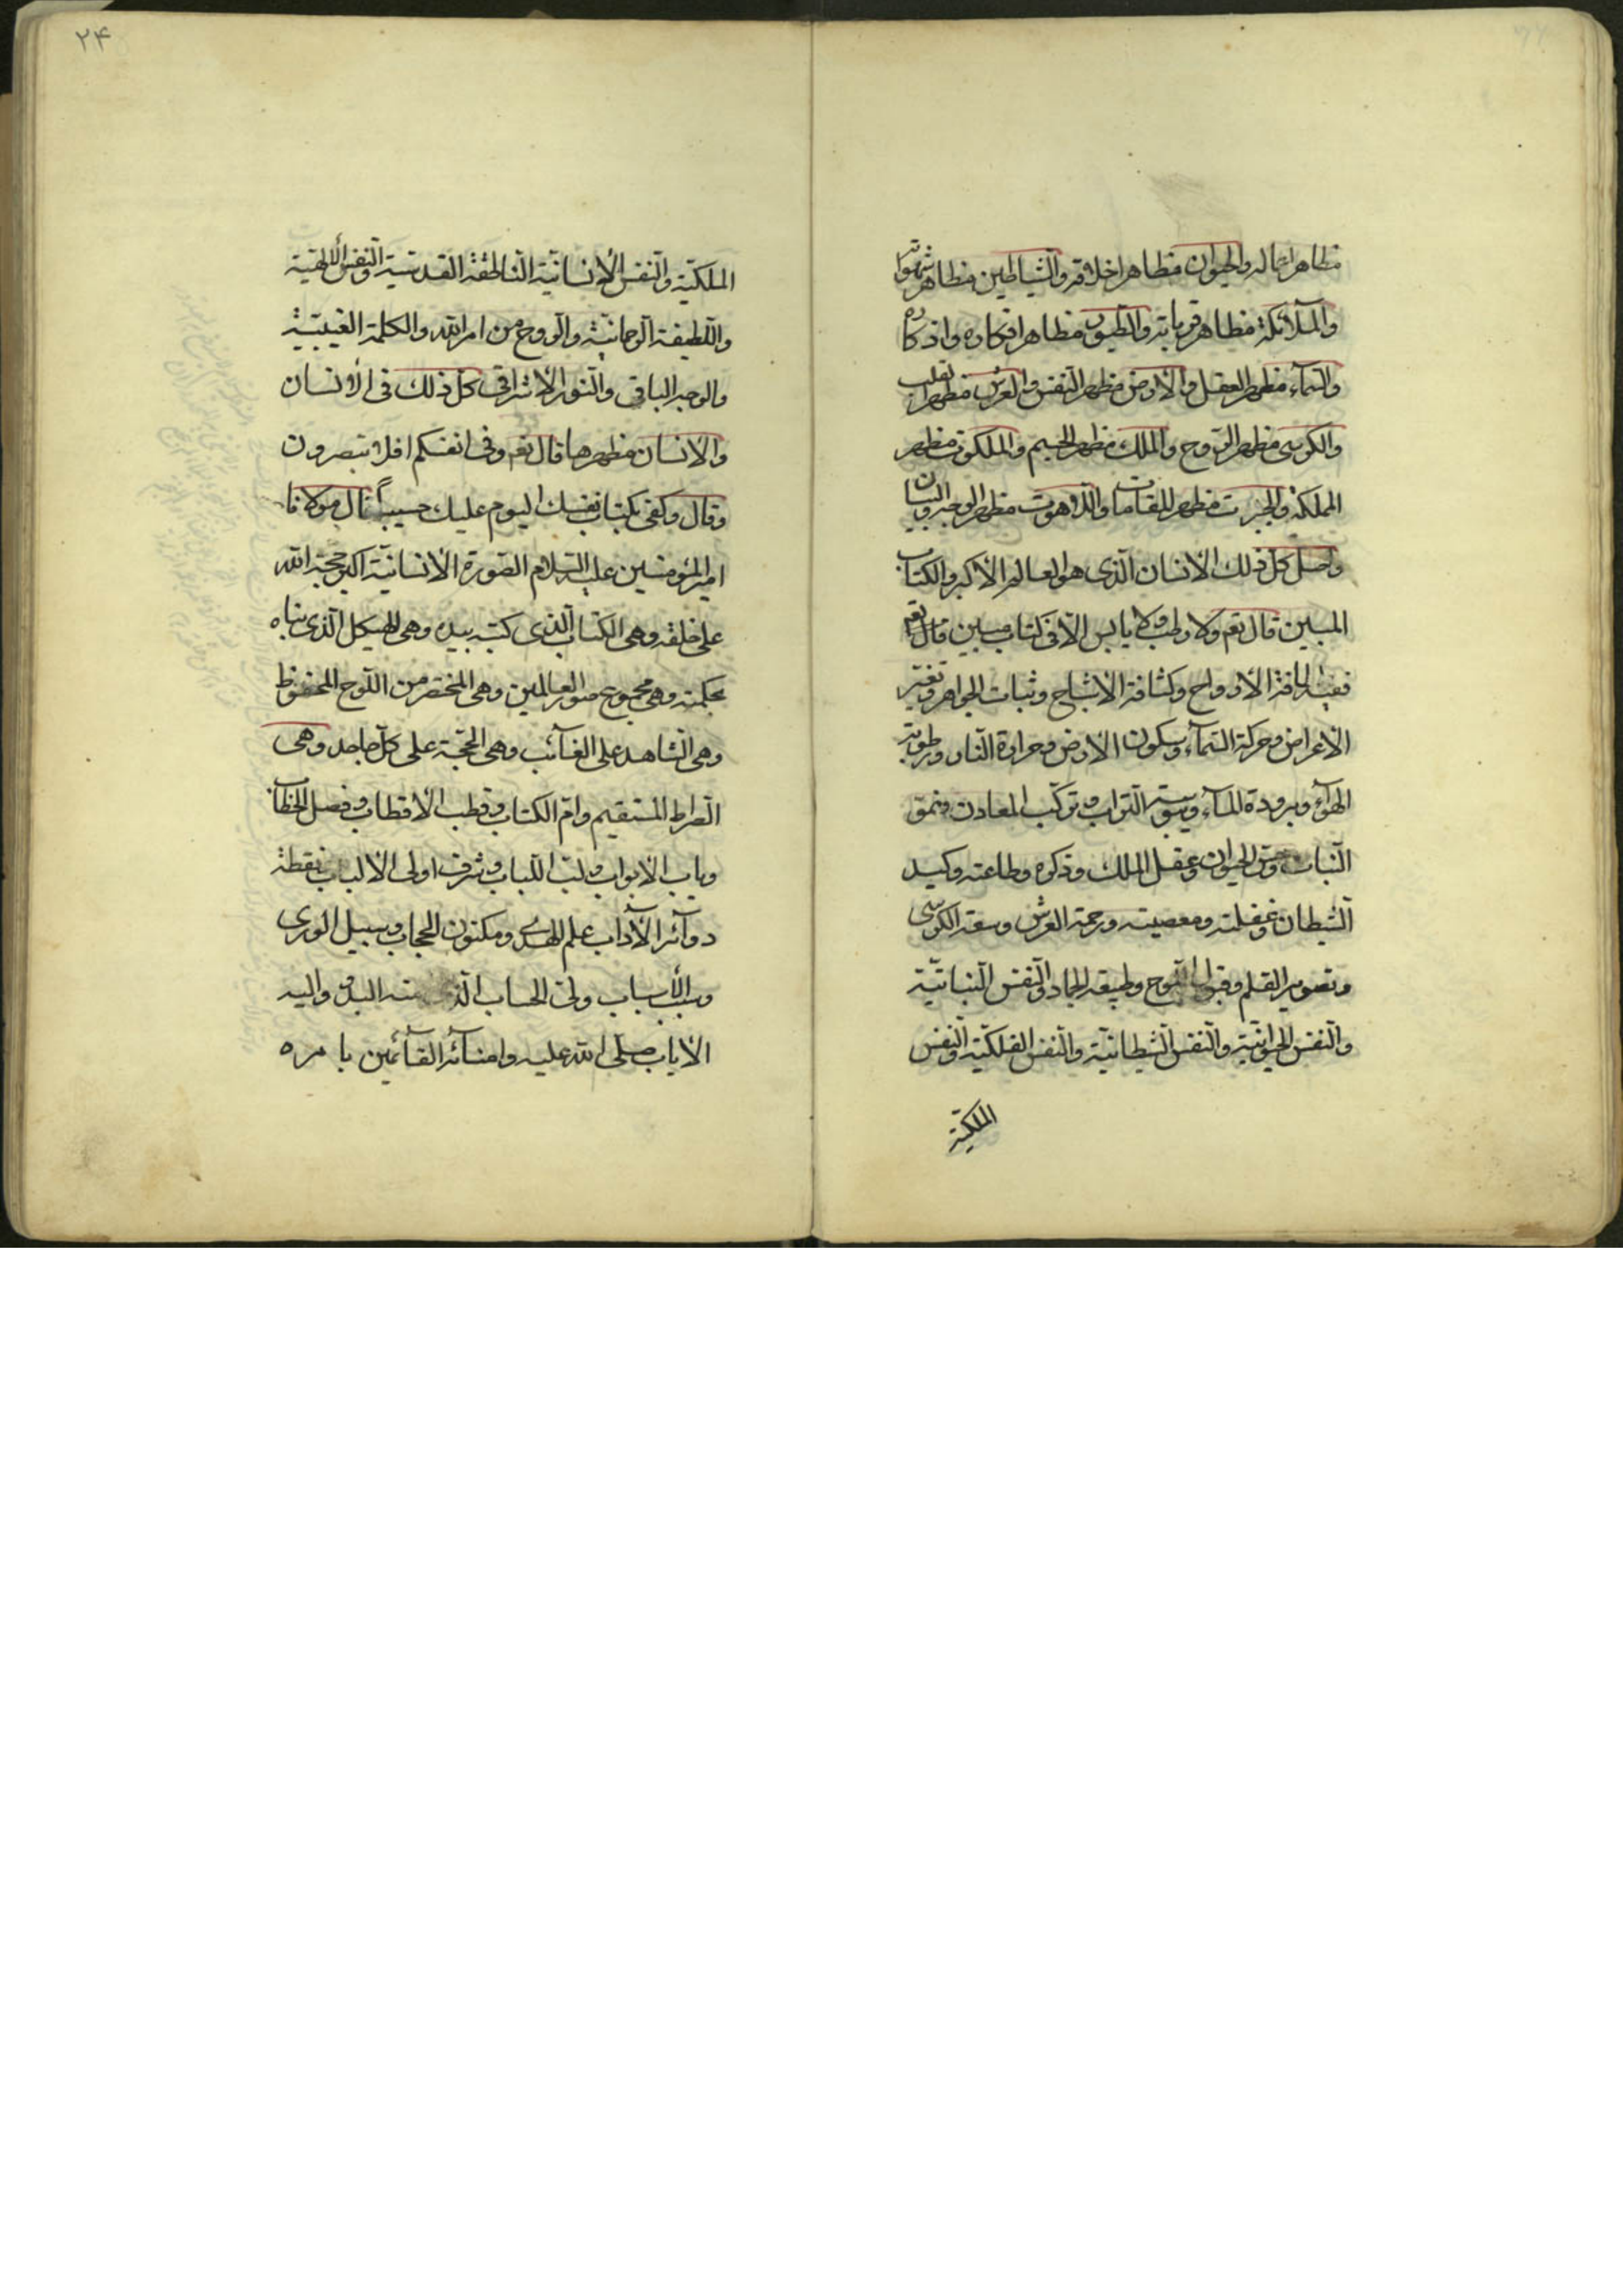 مظاهر اعماله والحیوان مظاهر اخلاقه والشّیاطین مظاهر شهواته
والملآئکة مظاهر قرباته والطیور مظاهر افکاره واذکاره
والسّمآء مظهر العقل والارض مظهر النّفس والعرش مظهر القلب
والکرسی مظهر الرّوح والملك مظهر الجسم والملکوت مظهر
المملکة والجبروت مظهر المقامات واللاهوت مظهر الوجه والبیان
کل ذلك الانسان الّذی هو العالم الاکبر والکتاب
المبین قال تعم ولا رطب ولا یابس الّا فی کتاب مبین قال تعم
ففیه لطافة الارواح وکثافة الاشباح وثبات الجواهر وتغیّر
الاعراض وحرکة السّمآء وسکون الارض وحرارة النّار ورطوبة
الهوآء وبرودة المآء ویبوسة التراب وترکّب المعادن ونمو
النّبات الحیوان وعقل الملك وذکره وطاعته وکید
الشّیطان وغفلته ومعصیته ورحمة العرش وسعة الکرسی
وتصویر القلم وقبول اللّوح وطبیعة الجماد والنّفس النّباتیّة
والنّفس الحیوانیّة والنّفس الشیطانیّة والنّفس الفلکیّة والنّفس
الملکیّة
۲۴
الملکیّة والنّفس الانسانیّة النّاطقة القدسیّة والنّفس الالهیّة
واللّطیفة الرّحمانیّة والرّوح من امر الله والکلمة الغیبیّة
والوجه الباقی والنّور الاشراقی کل ذلك فی الانسان
والانسان مظهرها قال تعم وفی انفسکم افلا تبصرون
وقال وکفی بکتاب نفسك الیوم علیك حسیباً قال مولانا
امیر المؤمنین علیه السّلام الصّورة الانسانیّة اکبر حجة الله
علی خلقه وهی الکتاب الّذی کتبه بیده وهی الهیکل الّذی بناه
بحکمته وهی مجموع صور العالمین وهی المختصر من اللّوح المحفوظ
وهی الشّاهد علی الغآئب وهی الحجّة علی کلّ جاحد وهی
الصّراط المستقیم وامّ الکتاب وقطب الاقطاب وفصل الخطاب
وباب الابواب ولبّ اللّباب وشرف اولی الالباب ونقطة
دوآئر الآداب علم الهدی ومکنون الحجاب وسبیل الوری
وسبب الأسباب وولیّ الحساب الّذی منه البدؤ والیه
الایاب صلی الله علیه وامنآئه القآئمین بامره